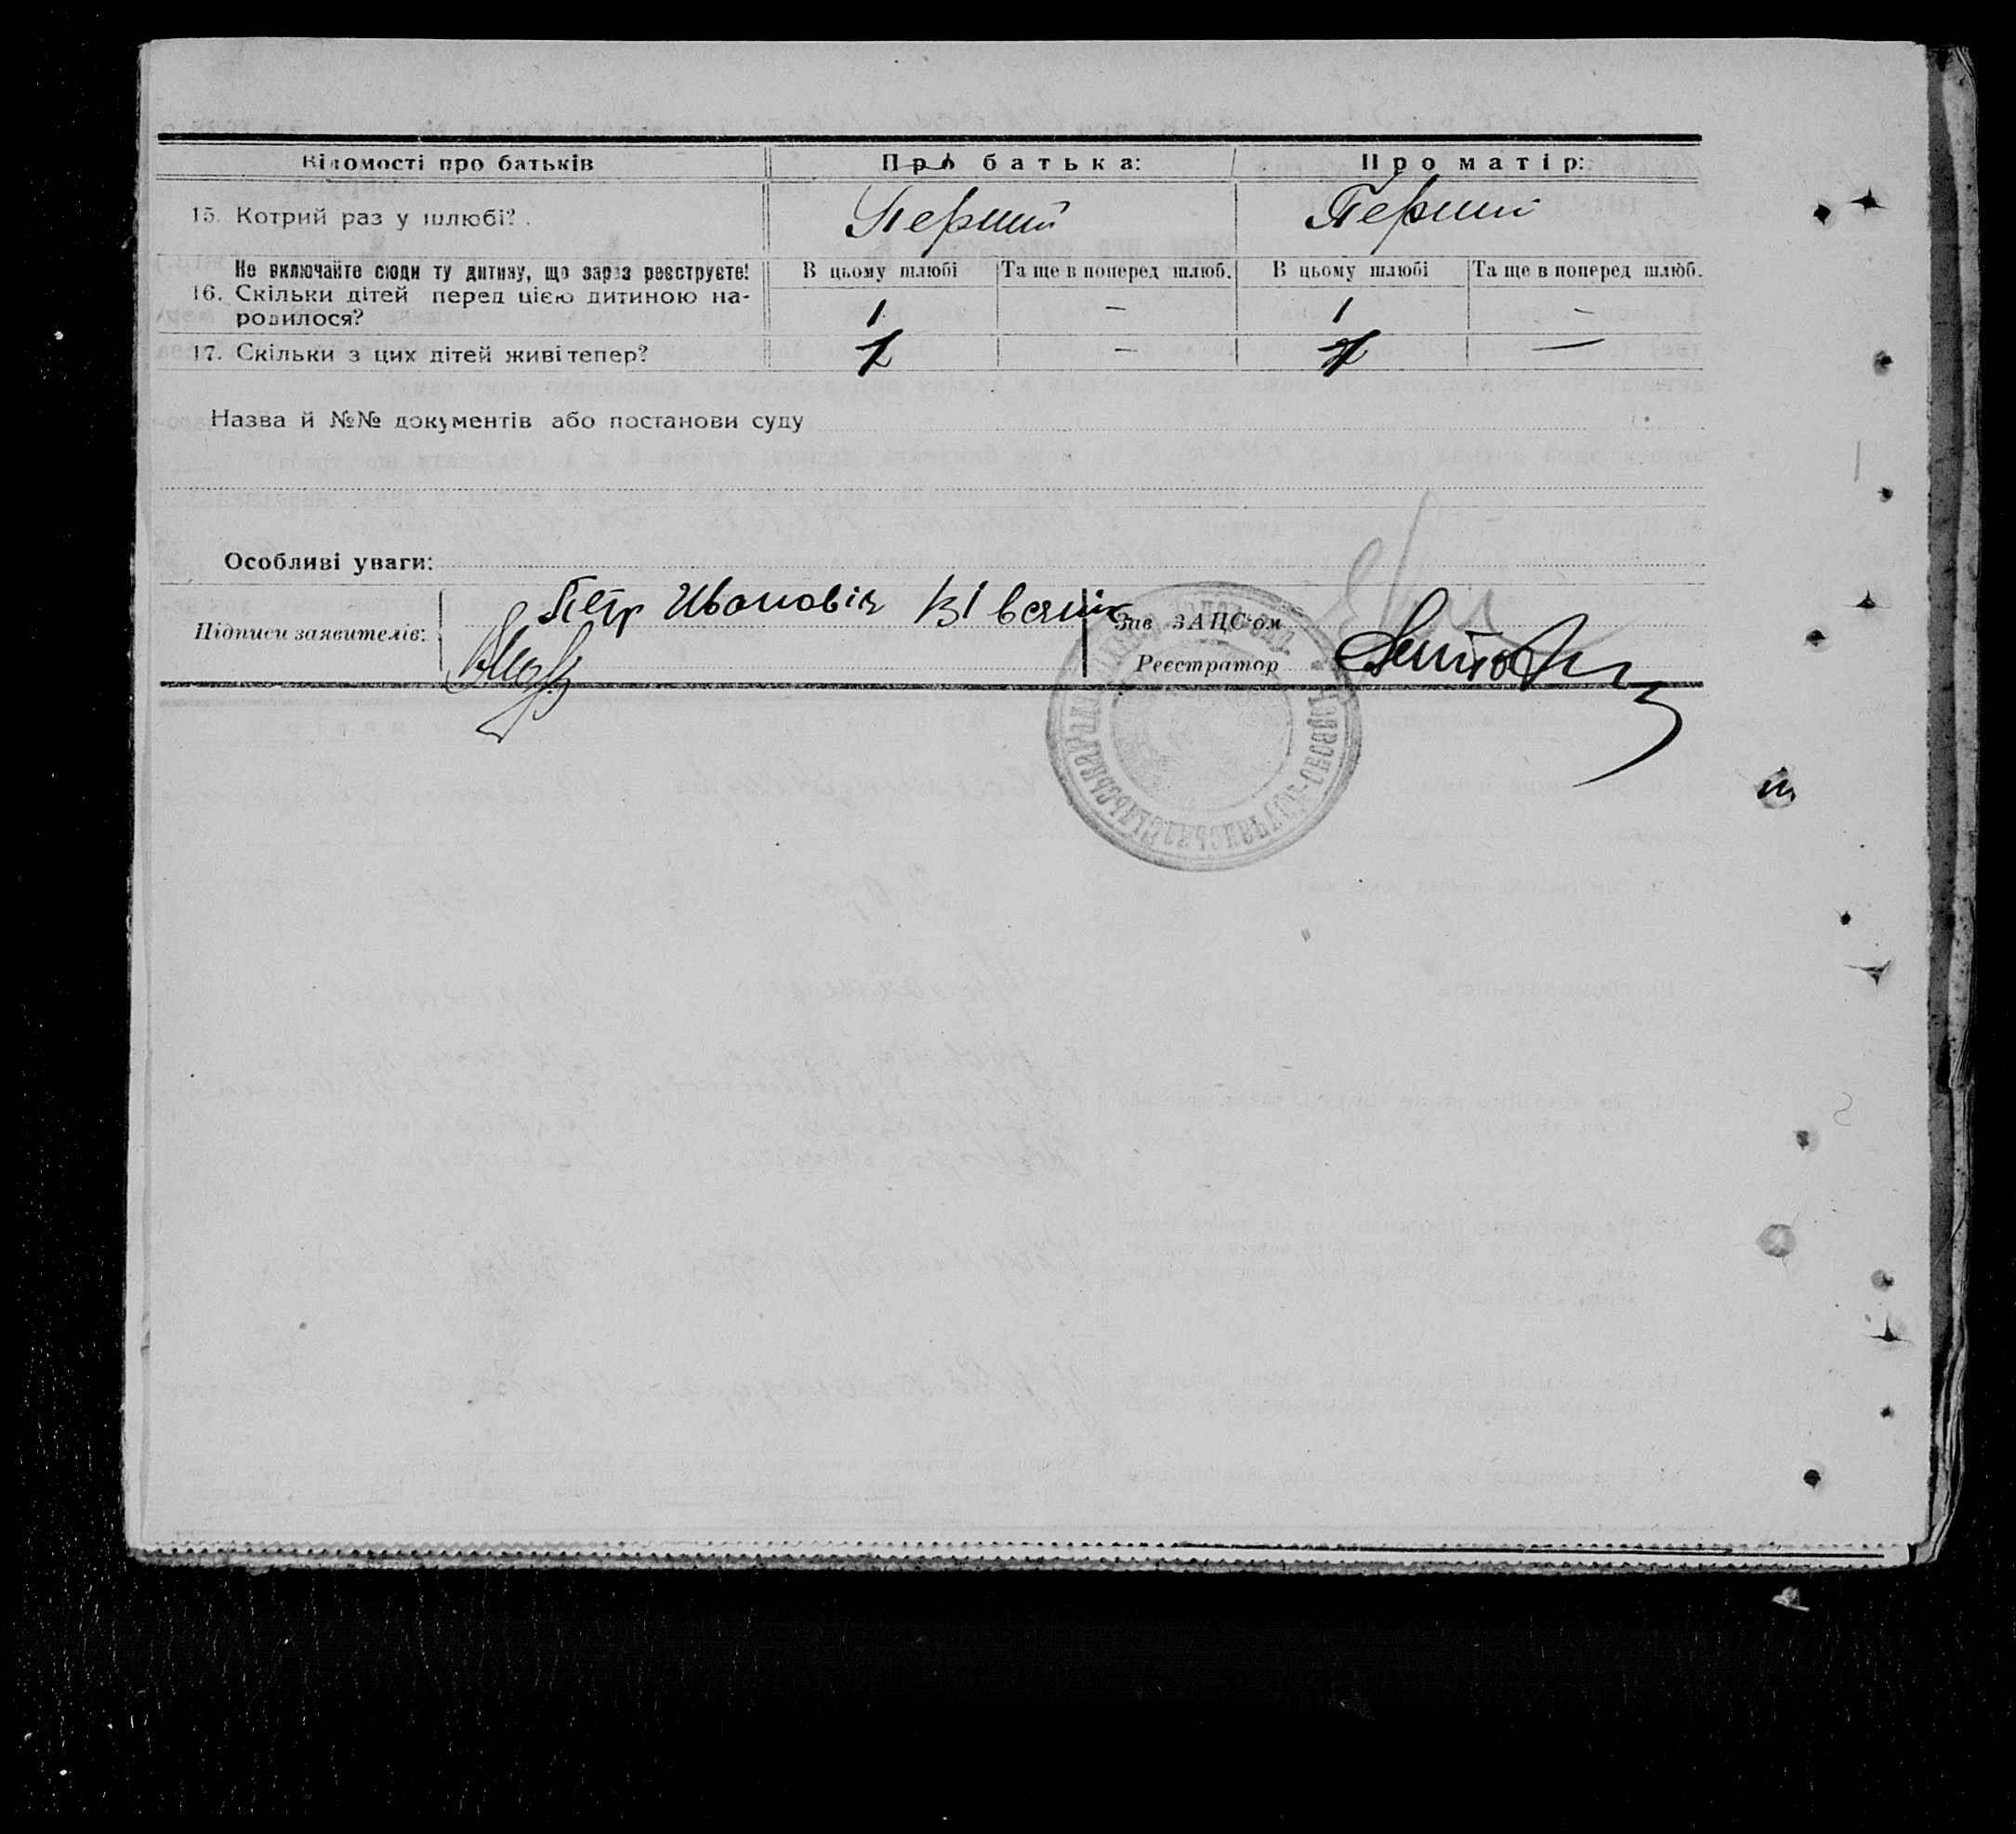 Відомості про батьків Про батька: Про матір:
15. Котрий раз у шлюбі? Перший Перший
Не включайте сюди ту дитину, що зараз реєструєте! В цьому шлюбі Та ще в поперед шлюб. В цьому шлюбі Та ще в поперед шлюб.
16. Скільки дітей перед цією дитиною на-
родилося? 1 – 1 –
17. Скільки з цих дітей живі тепер? – —
Назва й №№ документів або постанови суду
Особливі уваги:
Підписи заявителів: Петр Ивановіч
Зав ЗАЦС'ом
Реєстратор